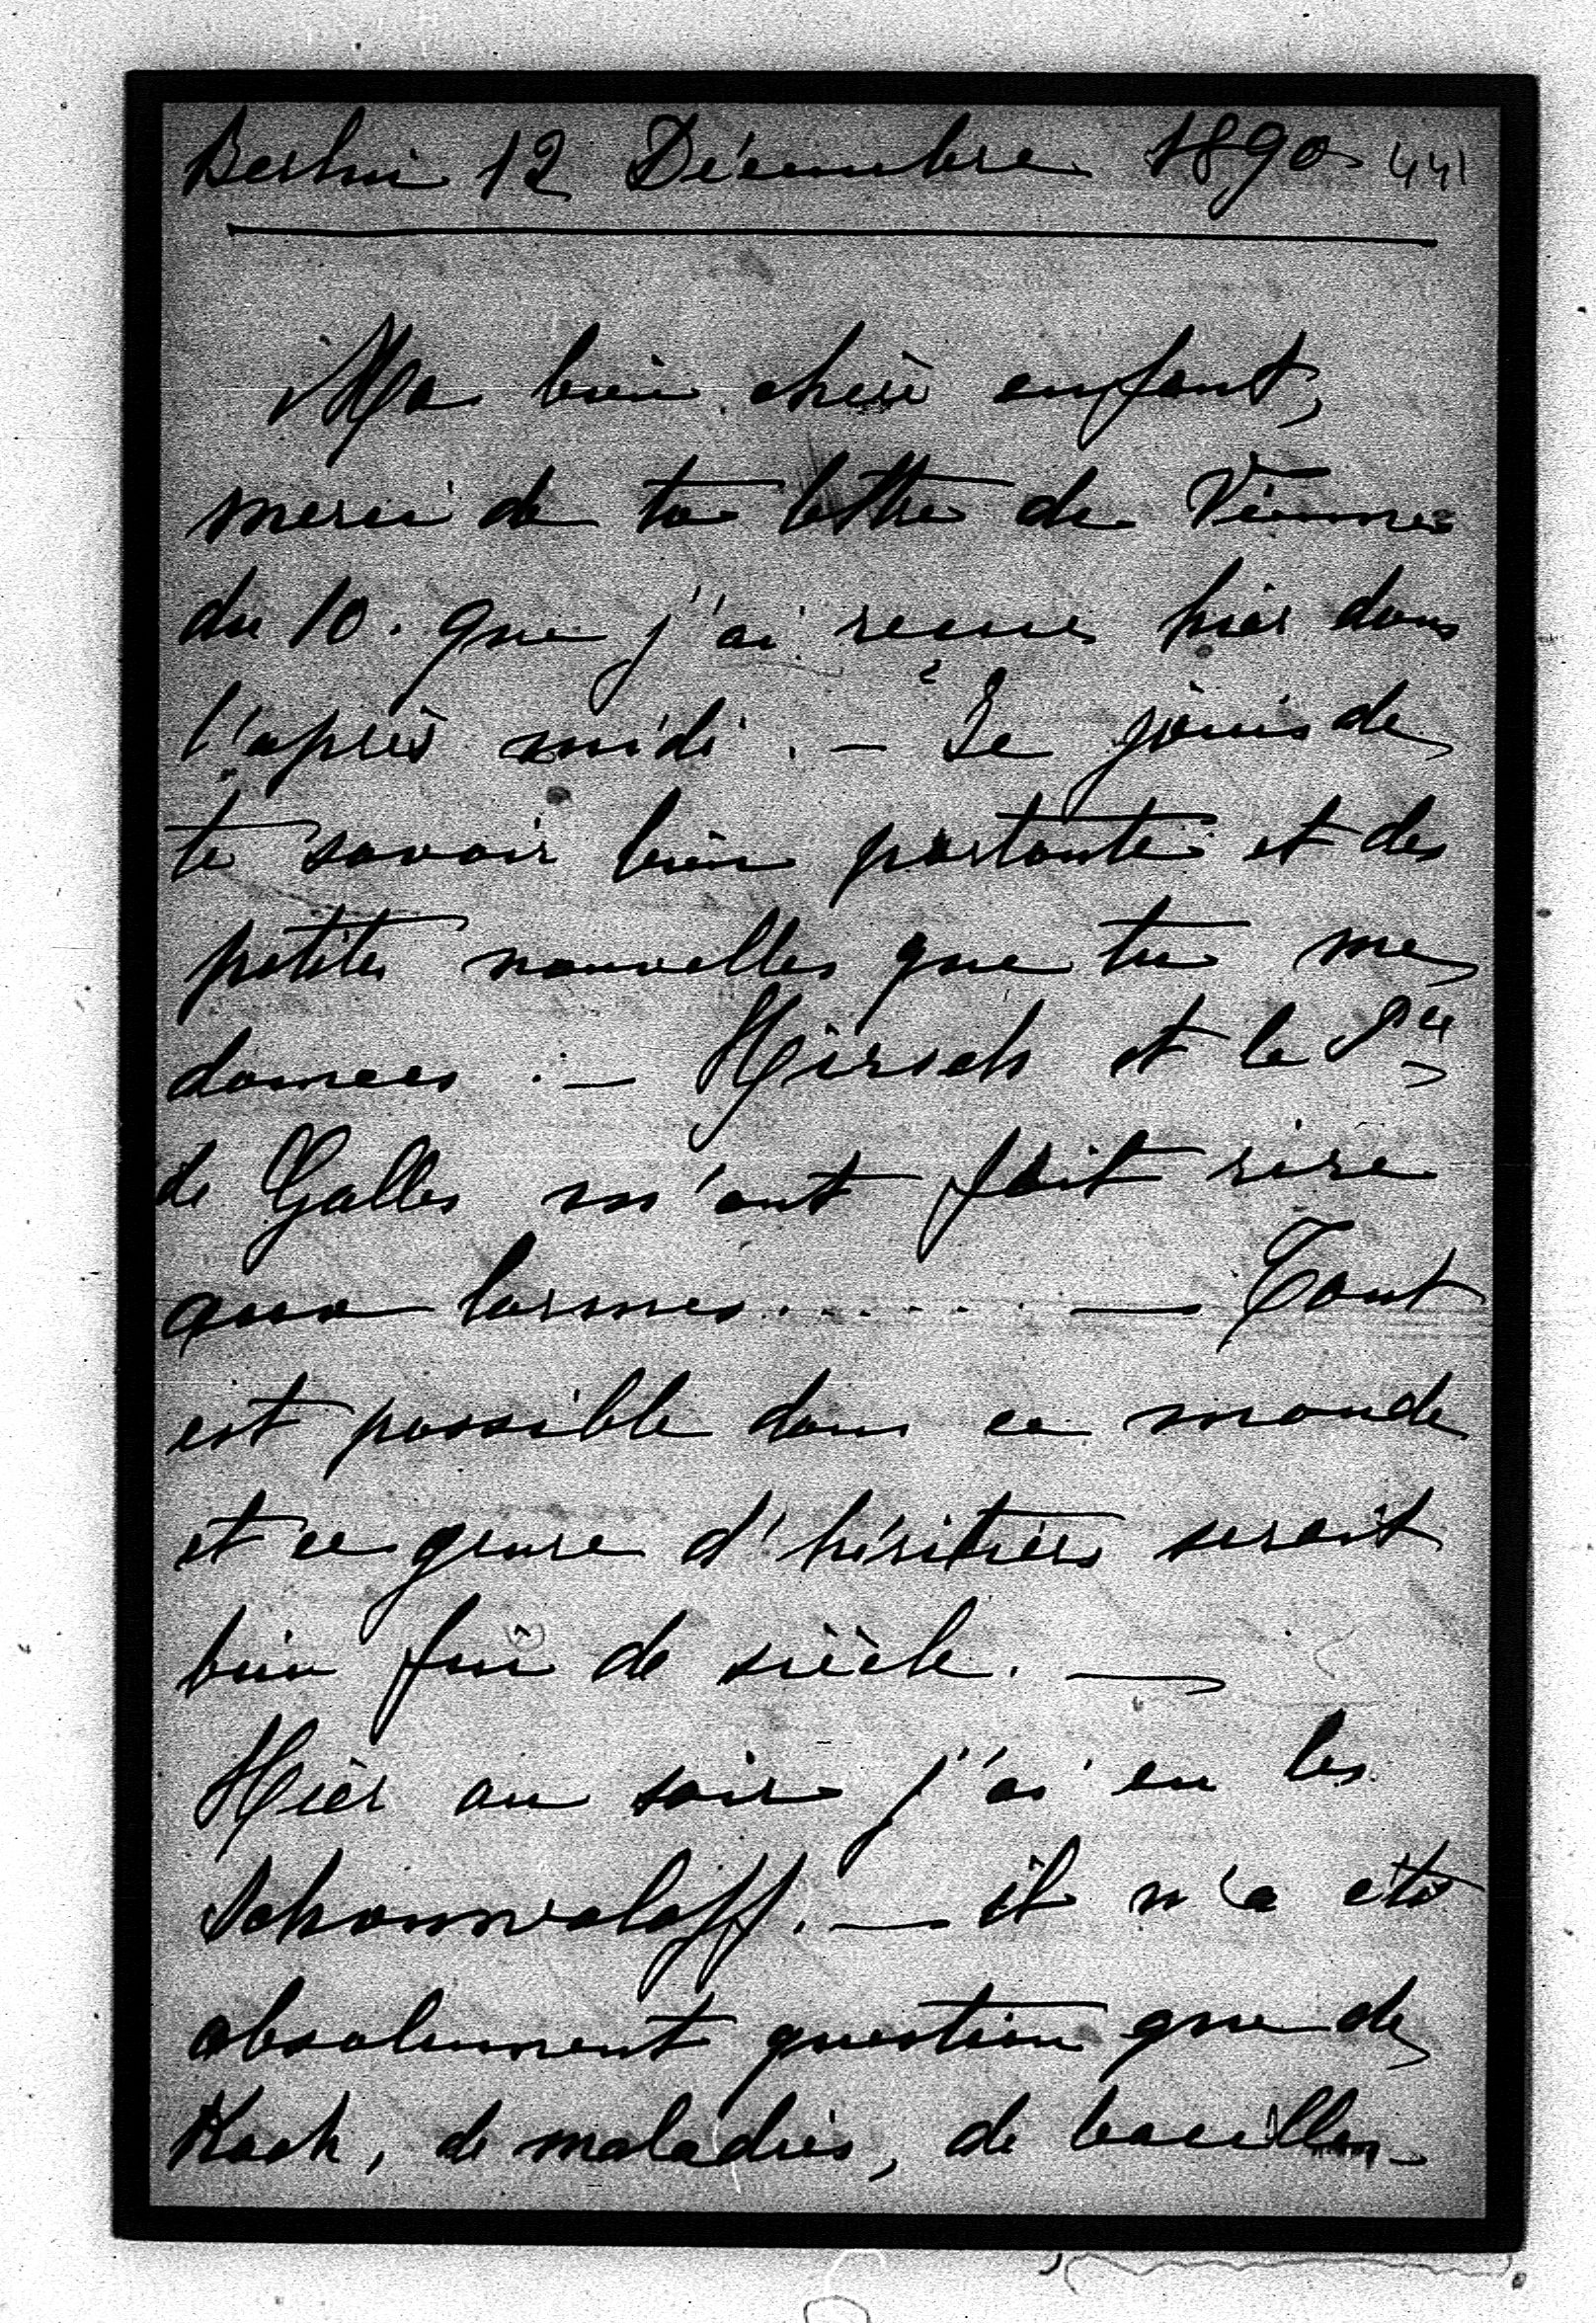 Berlin 12 Décembre 1890 441
Ma bien chère enfant,
merci de ta lettre de Vienne
du 10. que j'ai reçue hier dans
l'après midi. – Je jouis de
te savoir bien portante et des
petites nouvelles que tu me
donnes. – Hirsch et le Pce
de Galles m'ont fait rire
aux larmes. . . . . . — Tout
est possible dans ce monde
et ce genre d'héritiers serait
bien fin de siècle. —
Hier au soir j'ai eu les
Schouwaloff. — il n'a été
absolument question que de
Koch, de maladies, de bacilles –